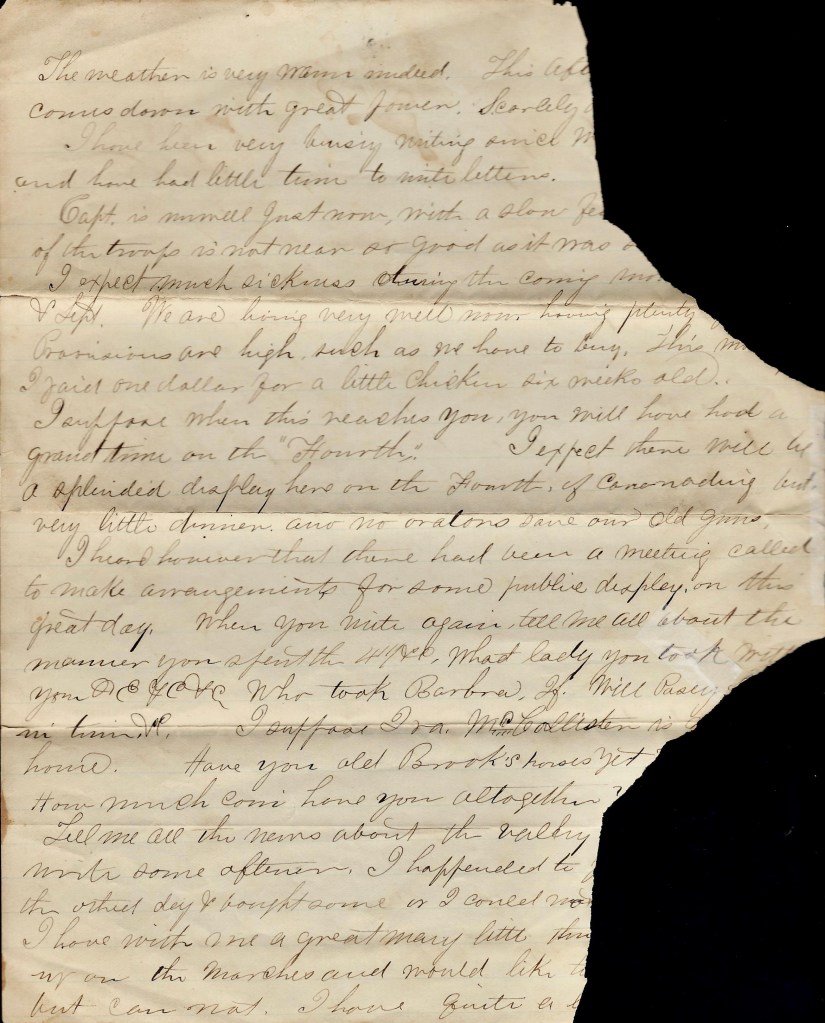 The weather is very warm indeed. This Aft
comes down with great power. Scarcely
I have been very buisy writing since
and have had little time to write letters.
Capt. is unwell just now, with a slow fe
of the troops is not near so good as it was
I expect much sickness during the coming mo
& Sept. We are living very well now having plenty
Provisions are high, such as we have to buy. This m
I paid one dollar for a little chicken six weeks old.
I suppose when this reaches you, you will have had a
grand time on the "Fourth". I expect there will be
a splended display here on the Fourth, of canonading but
very little dinner and no orators save our old guns.
I heard however that there had been a meeting called
to make arrangements for some public display on this
great day. When you write again, tell me all about the
manner you spent the 4th &C. What lady you took with
you &C &C &C Who took Barbra, If Will Pasey
in time &C. I suppose Ira McCollister is
home. Have you old Brook's horses yet
How much corn have you altogether?
Tell me all the news about the valley
write some oftener. I happended to
the other day & bought some or I could
I have with me a great many little thin
up on the Marches and would like t
but can not. I have quite a